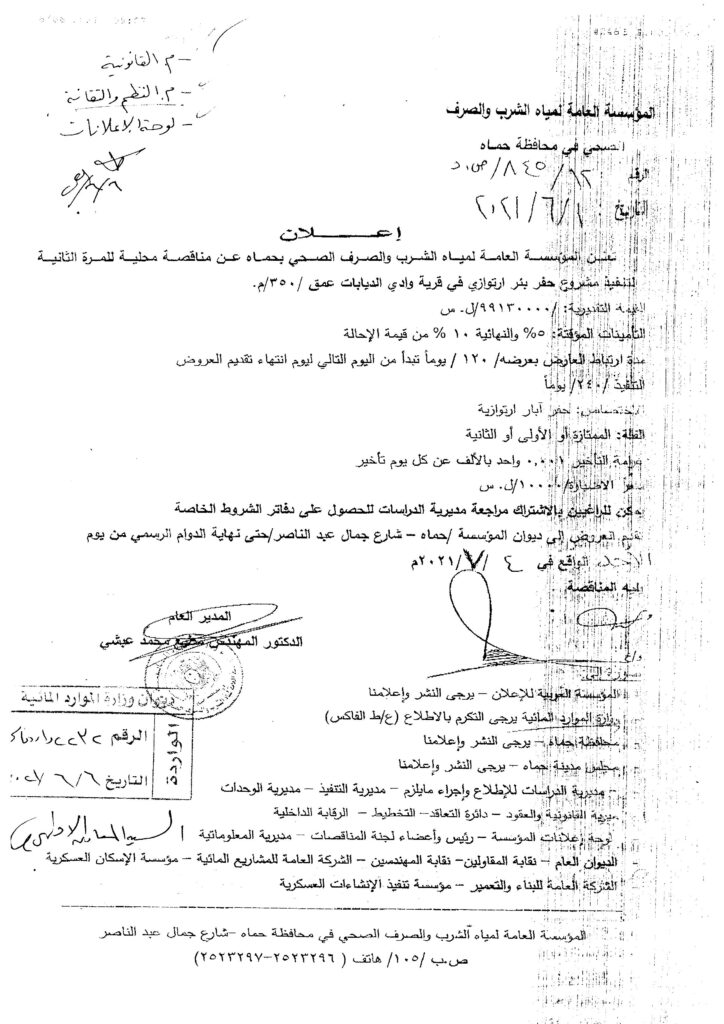 - م. القانونية
- م. النظم والتقانة
- لوحة الإعلانات
٦/٦
المؤسسة العامة لمياه الشرب والصرف
الصحي في محافظة حماه
الرقم ٨٤٥/٦٢/ص.د
التاريخ ٢٠٢١/٦/١
إعـــــلان
تعلن المؤسسة العامة لمياه الشرب والصرف الصحي بحماه عن مناقصة محلية للمرة الثانية
لتنفيذ مشروع حفر بئر ارتوازي في قرية وادي الديابات عمق /٣٥٠/م.
القيمة التقديرية: /٩٩١٣٠٠٠٠/ل. س
التأمينات المؤقتة: ٥% والنهائية ١٠ % من قيمة الإحالة
مدة ارتباط العارض بعرضه/ ١٢٠ / يوماً تبدأ من اليوم التالي ليوم انتهاء تقديم العروض
التنفيذ /٢٤٠/ يوماً
الاختصاص: حفر آبار ارتوازية
الفئة: الممتازة أو الأولى أو الثانية
غرامة التأخير ٠,٠٠١ واحد بالألف عن كل يوم تأخير
سعر الاضبارة/١٠٠٠٠/ل. س
يمكن للراغبين بالاشتراك مراجعة مديرية الدراسات للحصول على دفاتر الشروط الخاصة
تقدم العروض إلى ديوان المؤسسة /حماه – شارع جمال عبد الناصر/حتى نهاية الدوام الرسمي من يوم
الأحد الواقع في ٤ /٧/ ٢٠٢١م
المناقصة
المدير العام
الدكتور المهندس مطيع محمد عبشي
صورة إلى:
المؤسسة العربية للإعلان – يرجى النشر وإعلامنا
وزارة الموارد المائية يرجى التكرم بالاطلاع (ع/ط الفاكس)
محافظة حماه – يرجى النشر وإعلامنا
مجلس مدينة حماه – يرجى النشر وإعلامنا
مديرية الدراسات للإطلاع وإجراء مايلزم – مديرية التنفيذ – مديرية الوحدات
مديرية القانونية والعقود – دائرة التعاقد- التخطيط – الرقابة الداخلية
لوحة إعلانات المؤسسة – رئيس وأعضاء لجنة المناقصات – مديرية المعلوماتية
الديوان العام – نقابة المقاولين- نقابة المهندسين – الشركة العامة للمشاريع المائية – مؤسسة الإسكان العسكرية
الشركة العامة للبناء والتعمير – مؤسسة تنفيذ الإنشاءات العسكرية
ديوان وزارة الموارد المائية
الواردة
الرقم ٢٢٣٢
التاريخ ٦/٦
المؤسسة العامة لمياه الشرب والصرف الصحي في محافظة حماه –شارع جمال عبد الناصر
ص.ب /١٠٥/ هاتف ( ٢٥٢٣٢٩٦–٢٥٢٣٢٩٧)